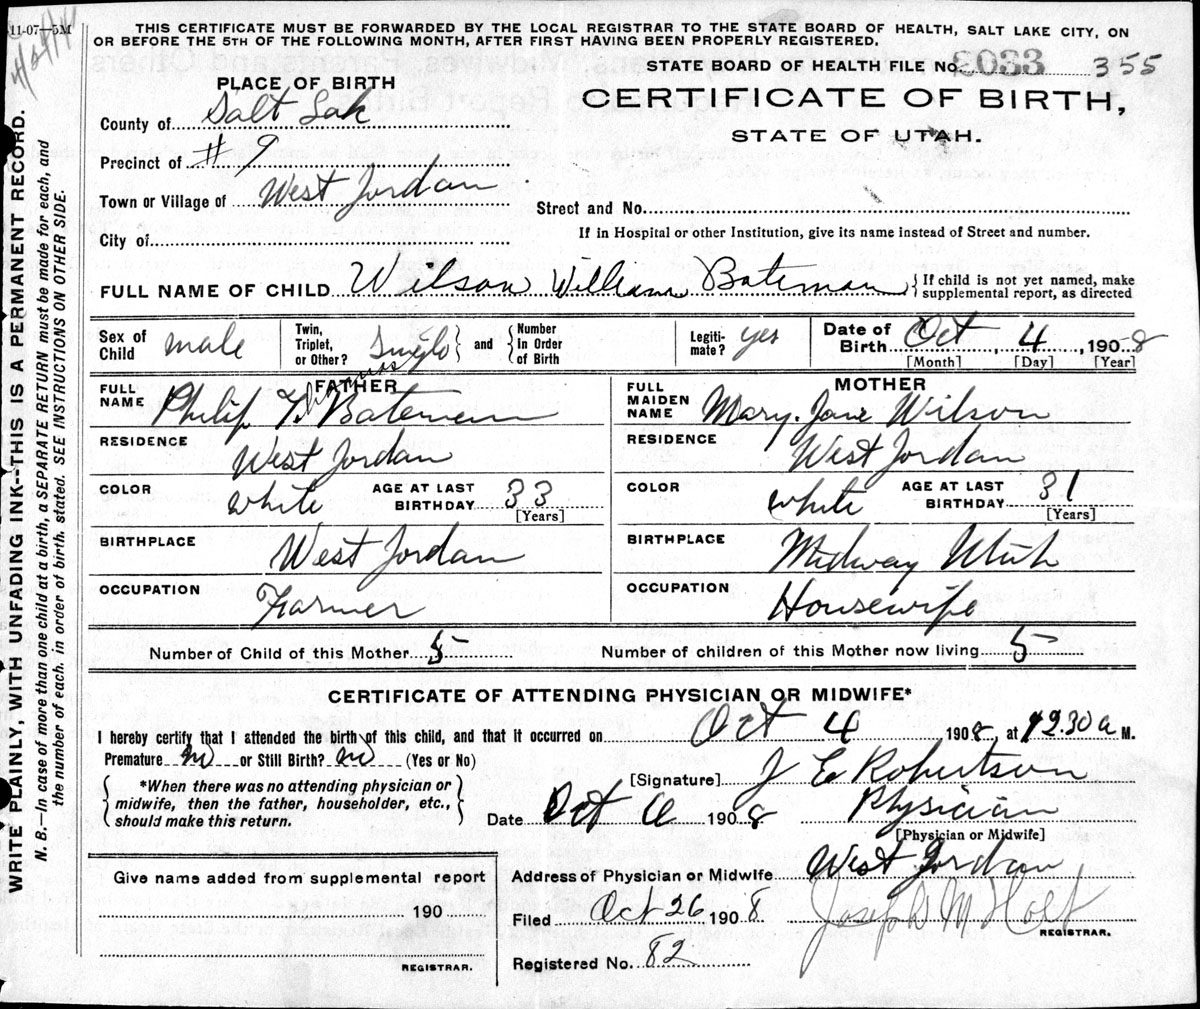 11-07—5M
THIS CERTIFICATE MUST BE FORWARDED BY THE LOCAL REGISTRAR TO THE STATE BOARD OF HEALTH, SALT LAKE CITY, ON
OR BEFORE THE 5TH OF THE FOLLOWING MONTH, AFTER FIRST HAVING BEEN PROPERLY REGISTERED.
STATE BOARD OF HEALTH FILE No. 3033 355
PLACE OF BIRTH
CERTIFICATE OF BIRTH,
STATE OF UTAH.
County of Salt Lak
Precinct of #9
Town or Village of West Jordan
Street and No.
City of
If in Hospital or other Institution, give its name instead of Street and number.
FULL NAME OF CHILD Wilson William Bateman { If child is not yet named, make
supplemental report, as directed
Sex of Child male Twin, Triplet, or Other? Single and Number In Order of Birth Legiti- mate? yes Date of Birth Oct, 4, 1908
[Month] [Day] [Year]
FATHER
FULL NAME Philip Thomas Bateman
RESIDENCE West Jordan
COLOR white AGE AT LAST BIRTHDAY 33
[Years]
BIRTHPLACE West Jordan
OCCUPATION Farmer
MOTHER
FULL MAIDEN NAME Mary Jane Wilson
RESIDENCE West Jordan
COLOR white AGE AT LAST BIRTHDAY 31
[Years]
BIRTHPLACE Midway Utah
OCCUPATION Housewife
Number of Child of this Mother 5 Number of children of this Mother now living 5
CERTIFICATE OF ATTENDING PHYSICIAN OR MIDWIFE*
I hereby certify that I attended the birth of this child, and that it occurred on Oct 4 1908, at 12.30 a M.
Premature no or Still Birth? no (Yes or No)
*When there was no attending physician or
midwife, then the father, householder, etc.,
should make this return.
[Signature] J E Robertson
Date Oct 6 1908 Physician
[Physician or Midwife]
Address of Physician or Midwife West Jordan
Filed Oct 26 1908 Joseph M Holt
REGISTRAR.
Registered No. 82
Give name added from supplemental report
190
REGISTRAR.
WRITE PLAINLY, WITH UNFADING INK--THIS IS A PERMANENT RECORD.
N. B.—In case of more than one child at a birth, a SEPARATE RETURN must be made for each, and
the number of each, in order of birth, stated. SEE INSTRUCTIONS ON OTHER SIDE.